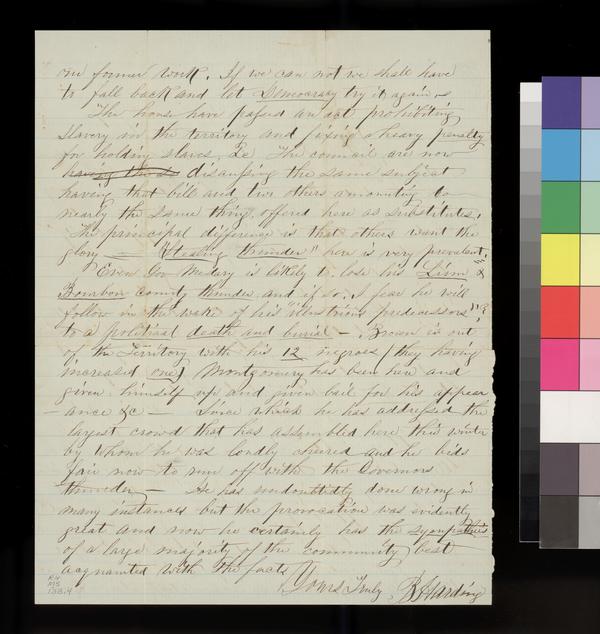 our former work. If we can not we shall have
to fall back and let Democracy try it again.
The house have passed an act prohibiting
slavery in the territory and fixing a heavy penalty
for holding slaves &c The council are now
having the so discussing the same subject
having that bill and two others amounting to
nearly the same thing, offered here as substitutes.
The principal difference is that others want the
glory — "Stealing thunder" here is very prevalent.
Even Gov Medary is likely to lose his Linn &
Bourbon county thunder and if so, I fear he will
follow in the wake of his "illustrious predecessors"
to a political death and burial — Brown is out
of the Territory with his 12 negroes (they having
increased one) Montgomery has been here and
given himself up and given bail for his appear
ance &c — Since which he has addressed the
largest crowd that has assembled here this winter
by whom he was loudly cheered and he bids
fair now to run off with the Governors
thunder — He has undoubtedly done wrong in
many instances but the provocation was evidently
great and now he certainly has the sympathies
of a large majority of the community best
acquainted with the facts
Yours Truly B Harding
RH
MS
138.4